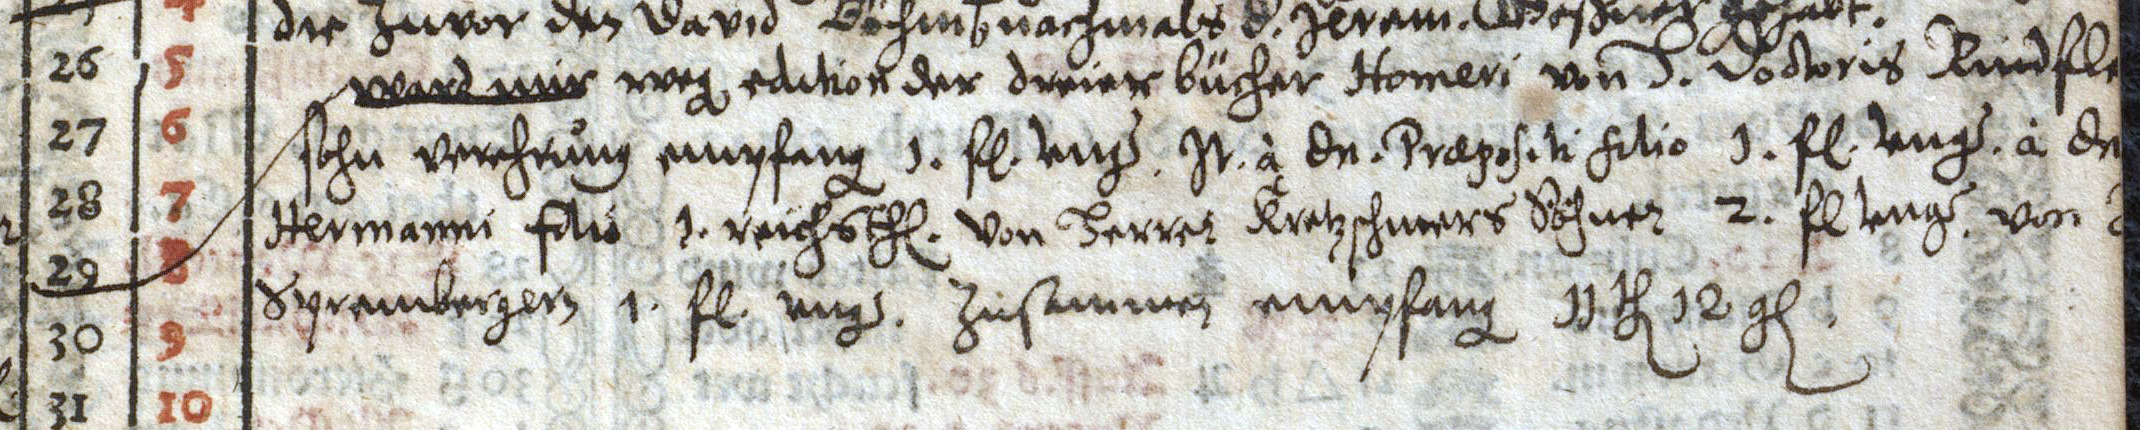 die Zuvor der David Böhm, nachmals d. Jerem. gehabt.
26 5 ward mir weg edition der dreier bücher Homeri von H. Doctoris Rindfle
27 6 sohn verehrung empfang 1. fl. ung. It. à Dn. Præpositi filio 1. fl. ung. à Dn
28 7 Hermanni filio 1. reichsthl. von Herren Kretzschmers Söhnen 2. fl ung. von
29 8 Sprembergern 1. fl. ung. Zusammen empfang 11 th 12 gl.
30 9
31 10